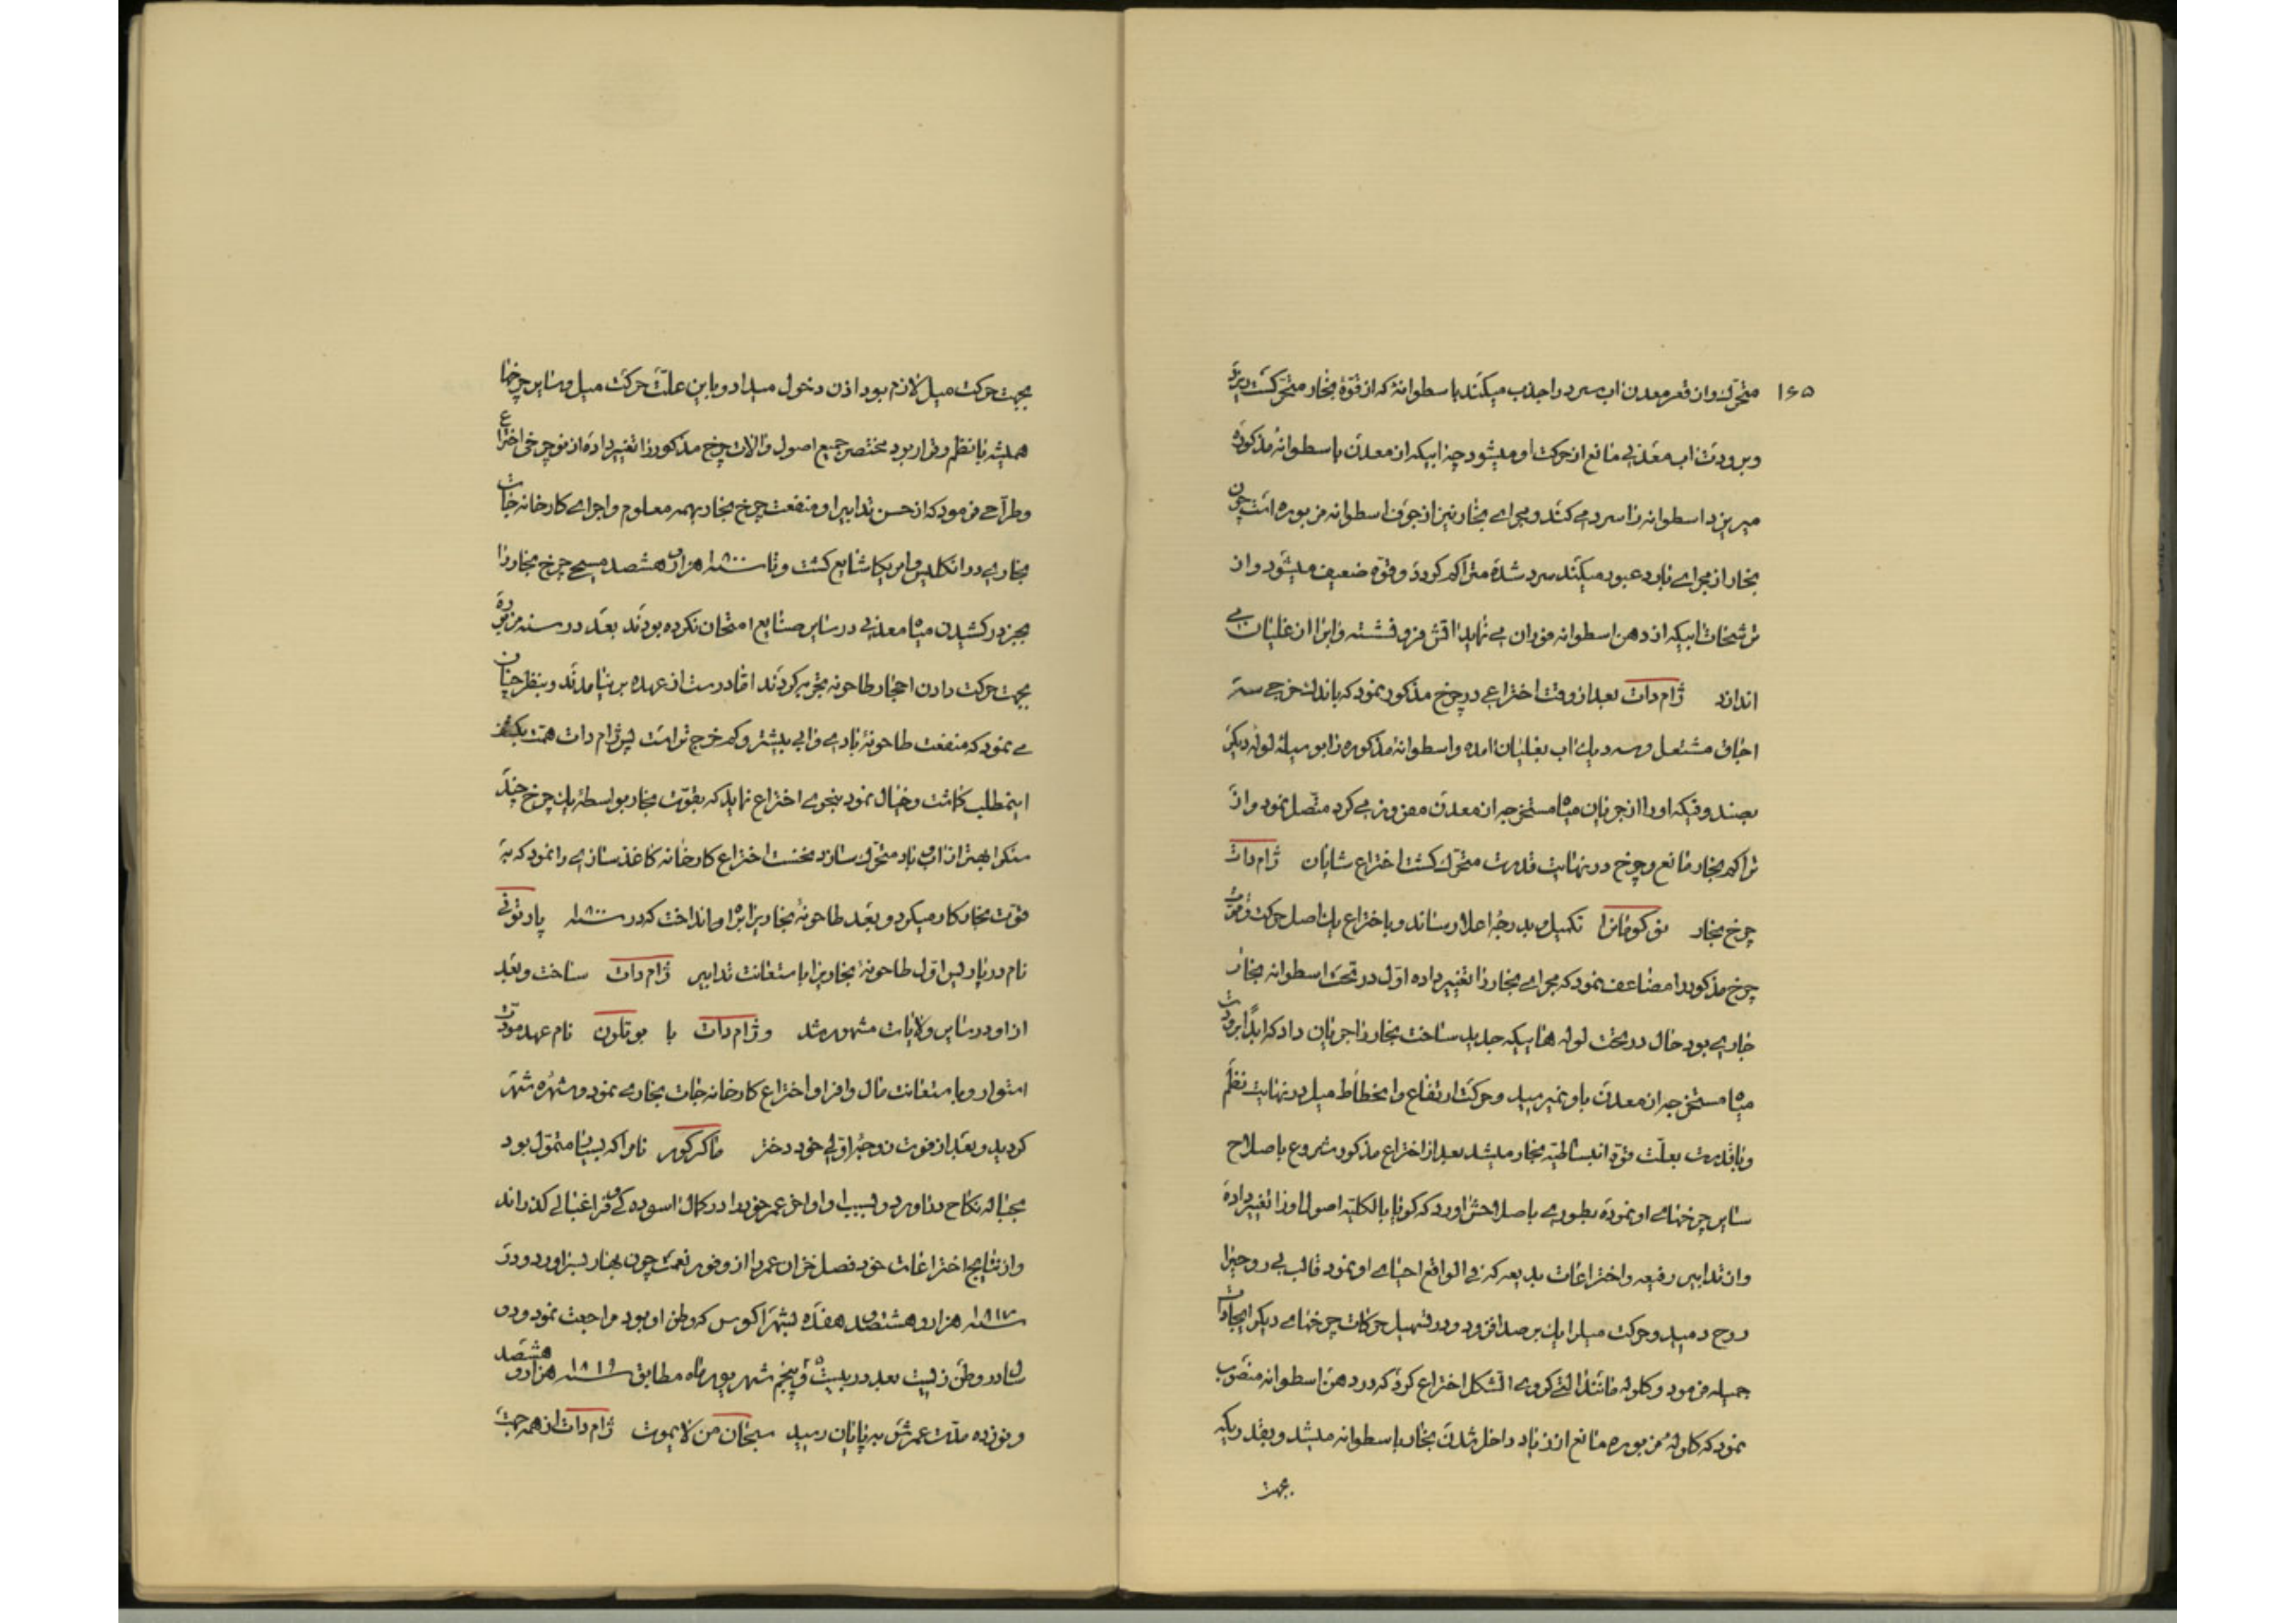 ۱۶۵
متحرک و از قعر معدن اب سرد را جذب میکند باسطوانهٔ که از قوّهٔ بخار متحرک کشت ریزد
و برودت اب معدنی مانع از حرکت او میشود چه ابیکه از معدن باسطوانهٔ مذکوره
میریزد اسطوانه را سرد می کند و مجرای بخار نیز از جوف اسطوانه مزبوره است چون
بخار از مجرای بارد عبور میکند سرد شده متراکم کردد و قوّه ضعیف میشود و از
ترشحات ابیکه از دهن اسطوانه فوران می نماید اتش فرو نشسته و ابرا از غلیان می
اندازد ژام دات بعد از وقت اختراعی در چرخ مذکور نمود که باندک خرجی سه
اجاق مشتعل و سه دیك اب بغلیان امده و اسطوانهٔ مذکوره را بوسیلهٔ لولهٔ دیکر
بصندوقیکه او را از جریان میاه مستخرجه از معدن مفروز می کرد متصل نمود و از
تراکم بخار مانع و چرخ در نهایت قدرت متحرک کشت اختراع شایان ژام دات
چرخ بخار نوکومانرا تکمیل و بدرجهٔ اعلا رساند و باختراع یك اصل حرکت و قوّت
چرخ مذکور را مضاعف نمود که مجرای بخار را تغییر داده اوّل در تحت اسطوانه بخار
جاری بود حال در تحت لوله هاییکه جدید ساخت بخار را جریان داد که ابدًا برودت
میاه مستخرجه از معدن باو نمیرسید و حرکت ارتفاع و انحطاط میل در نهایت نظم
و با قدرت بعلّت قوّة انبساطیّه بخار میشد بعد از اختراع مذکور شروع باصلاح
سایر چرخهای او نموده بطوری باصلاحش اورد که کویا بالکلیّه اصول او را تغییر داده
و از تدابیر رفیعه و اختراعات بدیعه که فی الواقع احیای او نمود قالب بی روحیرا
روح دمید و حرکت میلرا یك بر صد افزود و در تسهیل حرکات چرخهای دیکر ایجادات
جمیله فرمود و کلوله مانند التی کروی الشکل اختراع کرد که در دهن اسطوانه منصوب
نمود که کلولهٔ مزبوره مانع از زیاد داخل شدن بخار باسطوانه میشد و بقدریکه
بجهت
بجهت حرکت میل لازم بود اذن دخول میداد و باین علّت حرکت میل و سایر چرخها
همیشه با نظم و قرار بود مختصر جمیع اصول و الات چرخ مذکور را تغییر داده از نو چرخی اختراع
و طرآحی فرمود که از حسن تدابیر او منفعت چرخ بخار بهمه معلوم و اجرای کارخانه جات
بخاری در انکلیس و امریکا شایع کشت و تا سنه ۱۸۰۰ هزار و هشتصد مسیحی چرخ بخار را
بجز در کشیدن میاه معدنی در سایر صنایع امتحان نکرده بودند بعد در سنه مزبوره
بجهت حرکت دادن احجار طاحونه تجربه کردند اما درست از عهده بر نیامدند و بنظر چنان
می نمود که منفعت طاحونهٔ بادی و ابی بیشتر و کم خرج تر است پس ژام دات همّت بکشف
اینمطلب کماشت و خیال نمود بنحوی اختراع نماید که بقوّت بخار بواسطهٔ یك چرخ چند
سنکرا بهتر از اب و باد متحرک سازد نخست اختراع کارخانه کاغذ سازی را نمود که به
قوّت بخار کار میکرد و بعد طاحونهٔ بخاریرا براه انداخت که در سنه ۱۸۰۰ پارتوتی
نام در پاریس اوّل طاحونهٔ بخاریرا باستعانت تدابیر ژام دات ساخت و بعد
از او در سایر ولایات مشهور شد و ژام دات با بوتلون نام عهد مودّت
استوار و باستعانت مال وافر او اختراع کارخانه جات بخاری نمود و شهرهٔ شهر
کردید و بعد از فوت زوجهٔ اوّلی خود دختر ماکرکور نامرا که بسیار متموّل بود
بحبالهٔ نکاح در اورد و بسبب او اواخر عمر خود را در کمال اسوده کی و فراغبالی کذراند
و از نتایج اختراعات خود فصل خزان عمر را از وفور نعمت چون بهار بسر اورد و در
سنه ۱۸۱۷ هزار و هشتصد و هفده بشهر اکوس که وطن او بود مراجعت نمود و دو
سال در وطن زیست بعد در بیست و پنجم شهریور ماه مطابق سنه ۱۸۱۹ هزار و هشتصد
و نوزده مدّت عمرش به پایان رسید سبحان من لایموت ژام دات از همه جهت